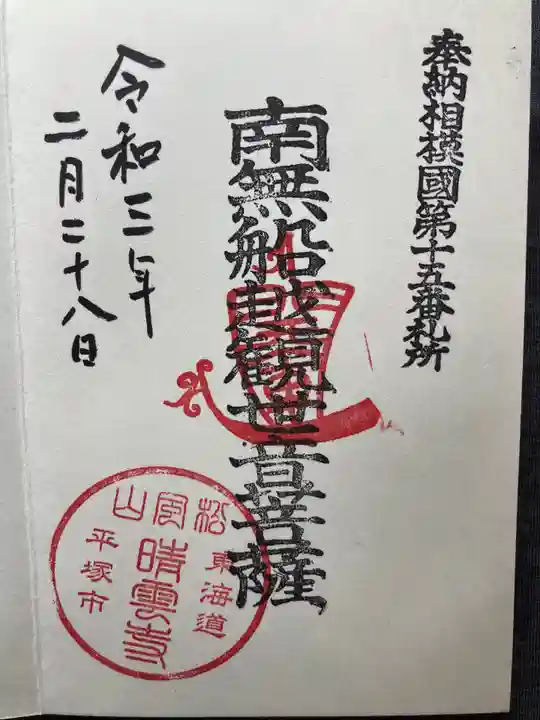 奉納相模國第十五番札所
南無船越観世音菩薩
令和三年
二月二十八日
松風山
晴雲寺
東海道
平塚市